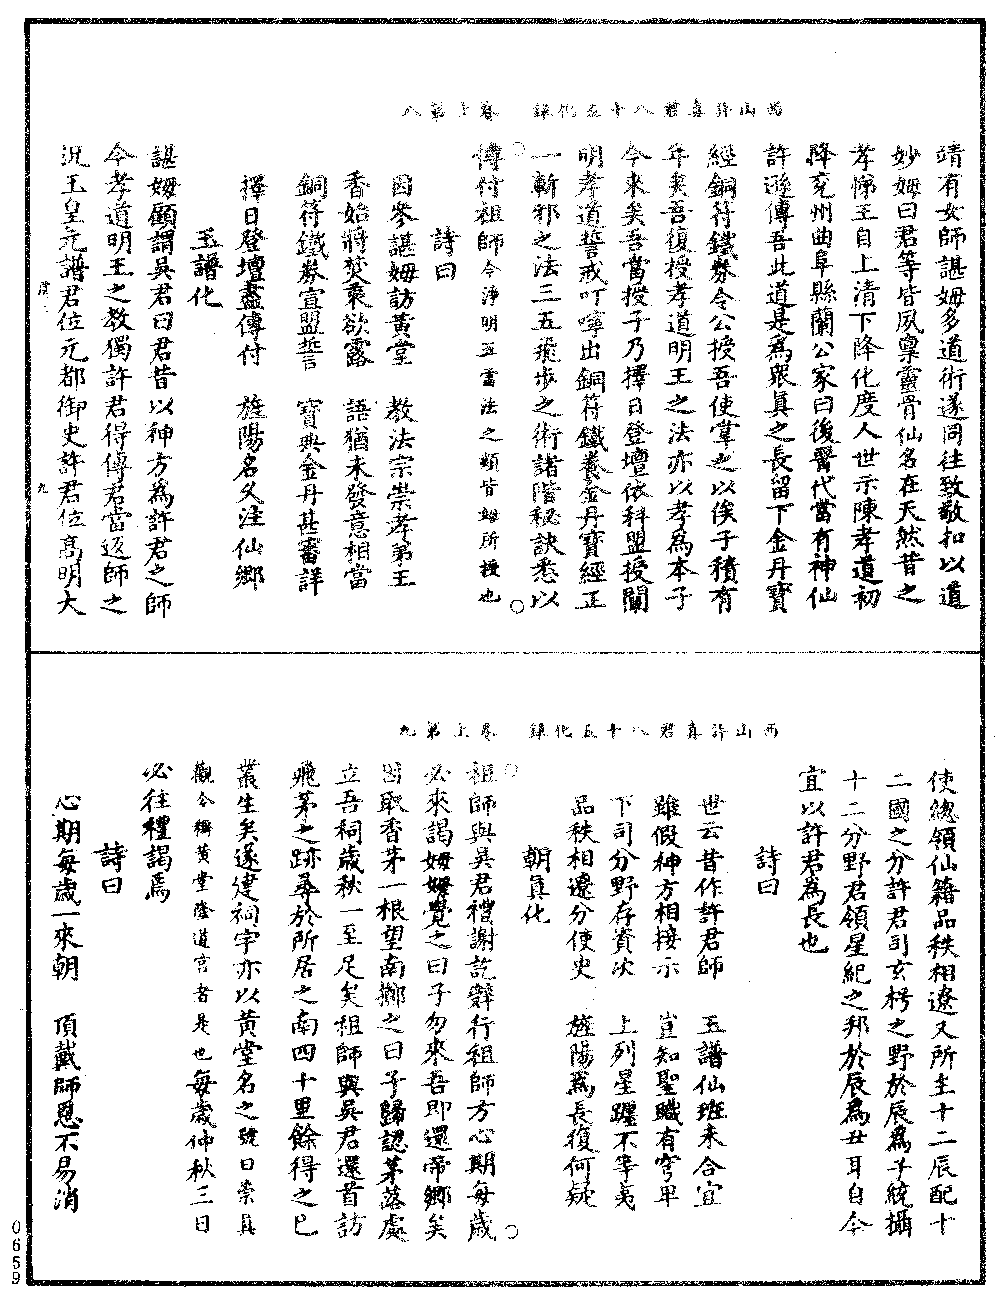 西山許真君八十五化錄　卷上第八
靖有女師諶姆多道術遂同往致敬扣以道
妙姆曰君等皆夙稟靈骨仙名在天然昔之
孝悌王自上清下降化度人世示陳孝道初
降兗州曲阜縣蘭公家曰後晉代當有神仙
許遜傳吾此道是為眾真之長留下金丹寶
經銅符鐵券令公授吾使掌之以俟子積有
年矣吾復授孝道明王之法亦以孝為本子
今來矣吾當授子乃擇日登壇依科盟授闡
明孝道誓戒叮嚀出銅符鐵券金丹寶經正
一斬邪之法三五飛步之術諸階秘訣悉以
傳付祖師今淨明五雷法之類皆姆所授也
詩曰
因參諶姆訪黃堂　教法宗崇孝弟王
香始將焚秉欲露　語猶未發意相當
銅符鐵券宣盟誓　寶典金丹甚審詳
擇日登壇盡傳付　旌陽名久注仙鄉
玉譜化
諶姆顧謂吳君曰君昔以神方為許君之師
今孝道明王之教獨許君得傳君當返師之
況玉皇元譜君位元都御史許君位高明大
九
西山許真君八十五化錄　卷上第九
使總領仙籍品秩相遼又所主十二辰配十
二國之分許君司玄枵之野於辰為子統攝
十二分野君領星紀之邦於辰為丑耳自今
宜以許君為長也
詩曰
世云昔作許君師　玉譜仙班未合宜
雖假神方相接示　豈知聖職有穹卑
下司分野存資次　上列星躔不等夷
品秩相遼分使史　旌陽為長復何疑
朝真化
祖師與吳君禮謝訖辭行祖師方心期每歲
必來謁姆姆覺之曰子勿來吾即還帝鄉矣
因取香茅一根望南擲之曰子歸認茅落處
立吾祠歲秋一至足矣祖師與吳君還首訪
飛茅之跡尋於所居之南四十里餘得之已
叢生矣遂建祠宇亦以黃堂名之號曰崇真
觀今稱黃堂隆道宮者是也每歲仲秋三日
必往禮謁焉
詩曰
心期每歲一來朝　頂戴師恩不易消
0659